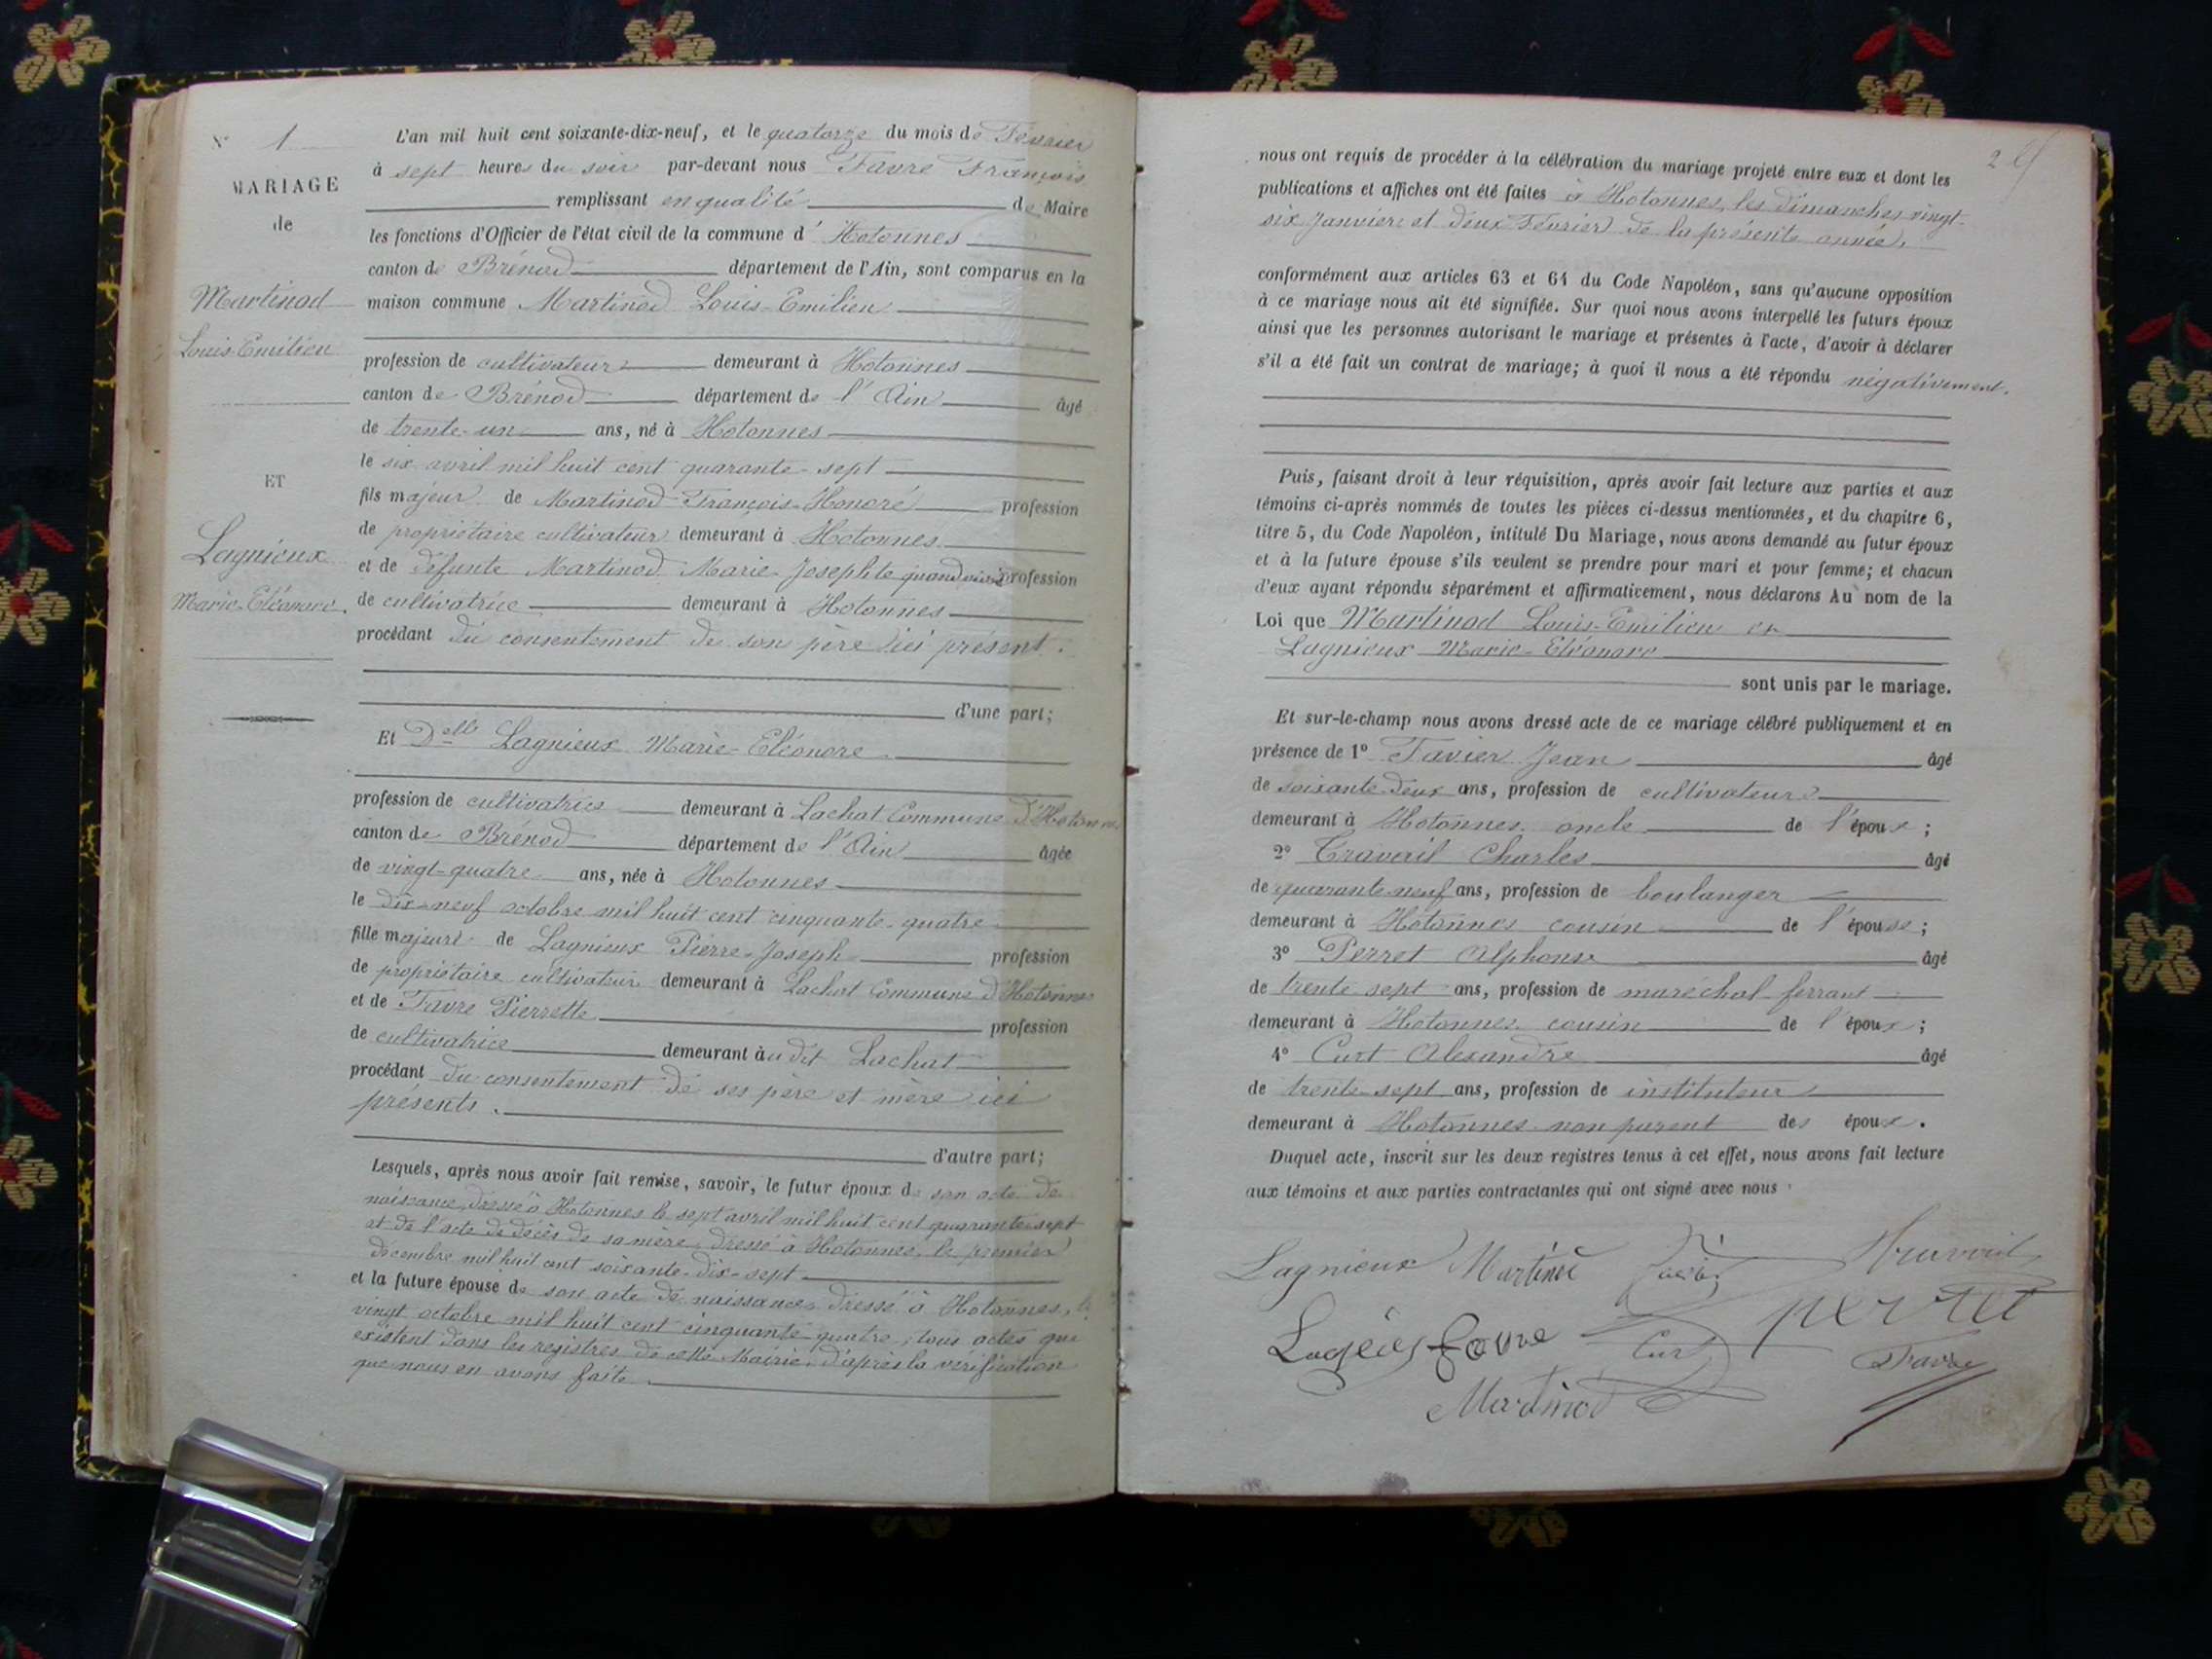 N° 1
MARIAGE
de
Martinod
Louis-Emilien
ET
Lagnieux
Marie-Eléonore.
L'an mil huit cent soixante-dix-neuf, et le quatorze du mois de Février
à sept heures du soir par-devant nous Favre François
remplissant en qualité de Maire
les fonctions d'Officier de l'état civil de la commune d' Hotonnes
canton de Brénod département de l'Ain, sont comparus en la
maison commune Martinod Louis-Emilien
profession de cultivateur demeurant à Hotonnes
canton de Brénod département de l'Ain âgé
de trente-un ans, né à Hotonnes
le six avril mil huit cent quarante-sept
fils majeur de Martinod François-Honoré profession
de propriétaire cultivateur demeurant à Hotonnes
et de défunte Martinod Marie-Josephte quand vivait profession
de cultivatrice demeurant à Hotonnes
procédant du consentement de son père ici présent.
d'une part;
Et Delle Lagnieux Marie-Eléonore
profession de cultivatrice demeurant à Lachat Commune d'Hotonnes
canton de Brénod département de l'Ain âgée
de vingt-quatre ans, née à Hotonnes
le dix-neuf octobre mil huit cent cinquante-quatre
fille majeure de Lagnieux Pierre-Joseph profession
de propriétaire cultivateur demeurant à Lachat Commune d'Hotonnes
et de Favre Pierrette profession
de cultivatrice demeurant àu dit Lachat
procédant du consentement de ses père et mère ici
présents.
d'autre part;
Lesquels, après nous avoir fait remise, savoir, le futur époux de son acte de
naissance, dressé à Hotonnes le sept avril mil huit cent quarante-sept
et de l'acte de décès de sa mère, dressé à Hotonnes, le premier
décembre mil huit cent soixante-dix-sept
et la future épouse de son acte de naissance dressé à Hotonnes, le
vingt octobre mil huit cent cinquante-quatre; tous actes qui
existent dans les registres de cette Mairie, d'après la vérification
que nous en avons faite.
nous ont requis de procéder à la célébration du mariage projeté entre eux et dont les
publications et affiches ont été faites à Hotonnes, les dimanches vingt-
six Janvier et deux Février de la présente année,
conformément aux articles 63 et 64 du Code Napoléon, sans qu'aucune opposition
à ce mariage nous ait été signifiée. Sur quoi nous avons interpellé les futurs époux
ainsi que les personnes autorisant le mariage et présentes à l'acte, d'avoir à déclarer
s'il a été fait un contrat de mariage; à quoi il nous a été répondu négativement.
Puis, faisant droit à leur réquisition, après avoir fait lecture aux parties et aux
témoins ci-après nommés de toutes les pièces ci-dessus mentionnées, et du chapitre 6,
titre 5, du Code Napoléon, intitulé Du Mariage, nous avons demandé au futur époux
et à la future épouse s'ils veulent se prendre pour mari et pour femme; et chacun
d'eux ayant répondu séparément et affirmativement, nous déclarons Au nom de la
Loi que Martinod Louis-Emilien et
Lagnieux Marie-Eléonore
sont unis par le mariage.
Et sur-le-champ nous avons dressé acte de ce mariage célébré publiquement et en
présence de 1° Tavier Jean âgé
de soixante-deux ans, profession de cultivateur
demeurant à Hotonnes oncle de l'époux;
2° Travail Charles âgé
de quarante-neuf ans, profession de boulanger
demeurant à Hotonnes cousin de l'épouse;
3° Perret Alphonse âgé
de trente-sept ans, profession de maréchal-ferrant
demeurant à Hotonnes cousin de l'époux;
4° Curt Alexandre âgé
de trente-sept ans, profession de instituteur
demeurant à Hotonnes non parent des époux.
Duquel acte, inscrit sur les deux registres tenus à cet effet, nous avons fait lecture
aux témoins et aux parties contractantes qui ont signé avec nous
Lagnieux Martinod Travail
favre Curt perret
Martinod Favre